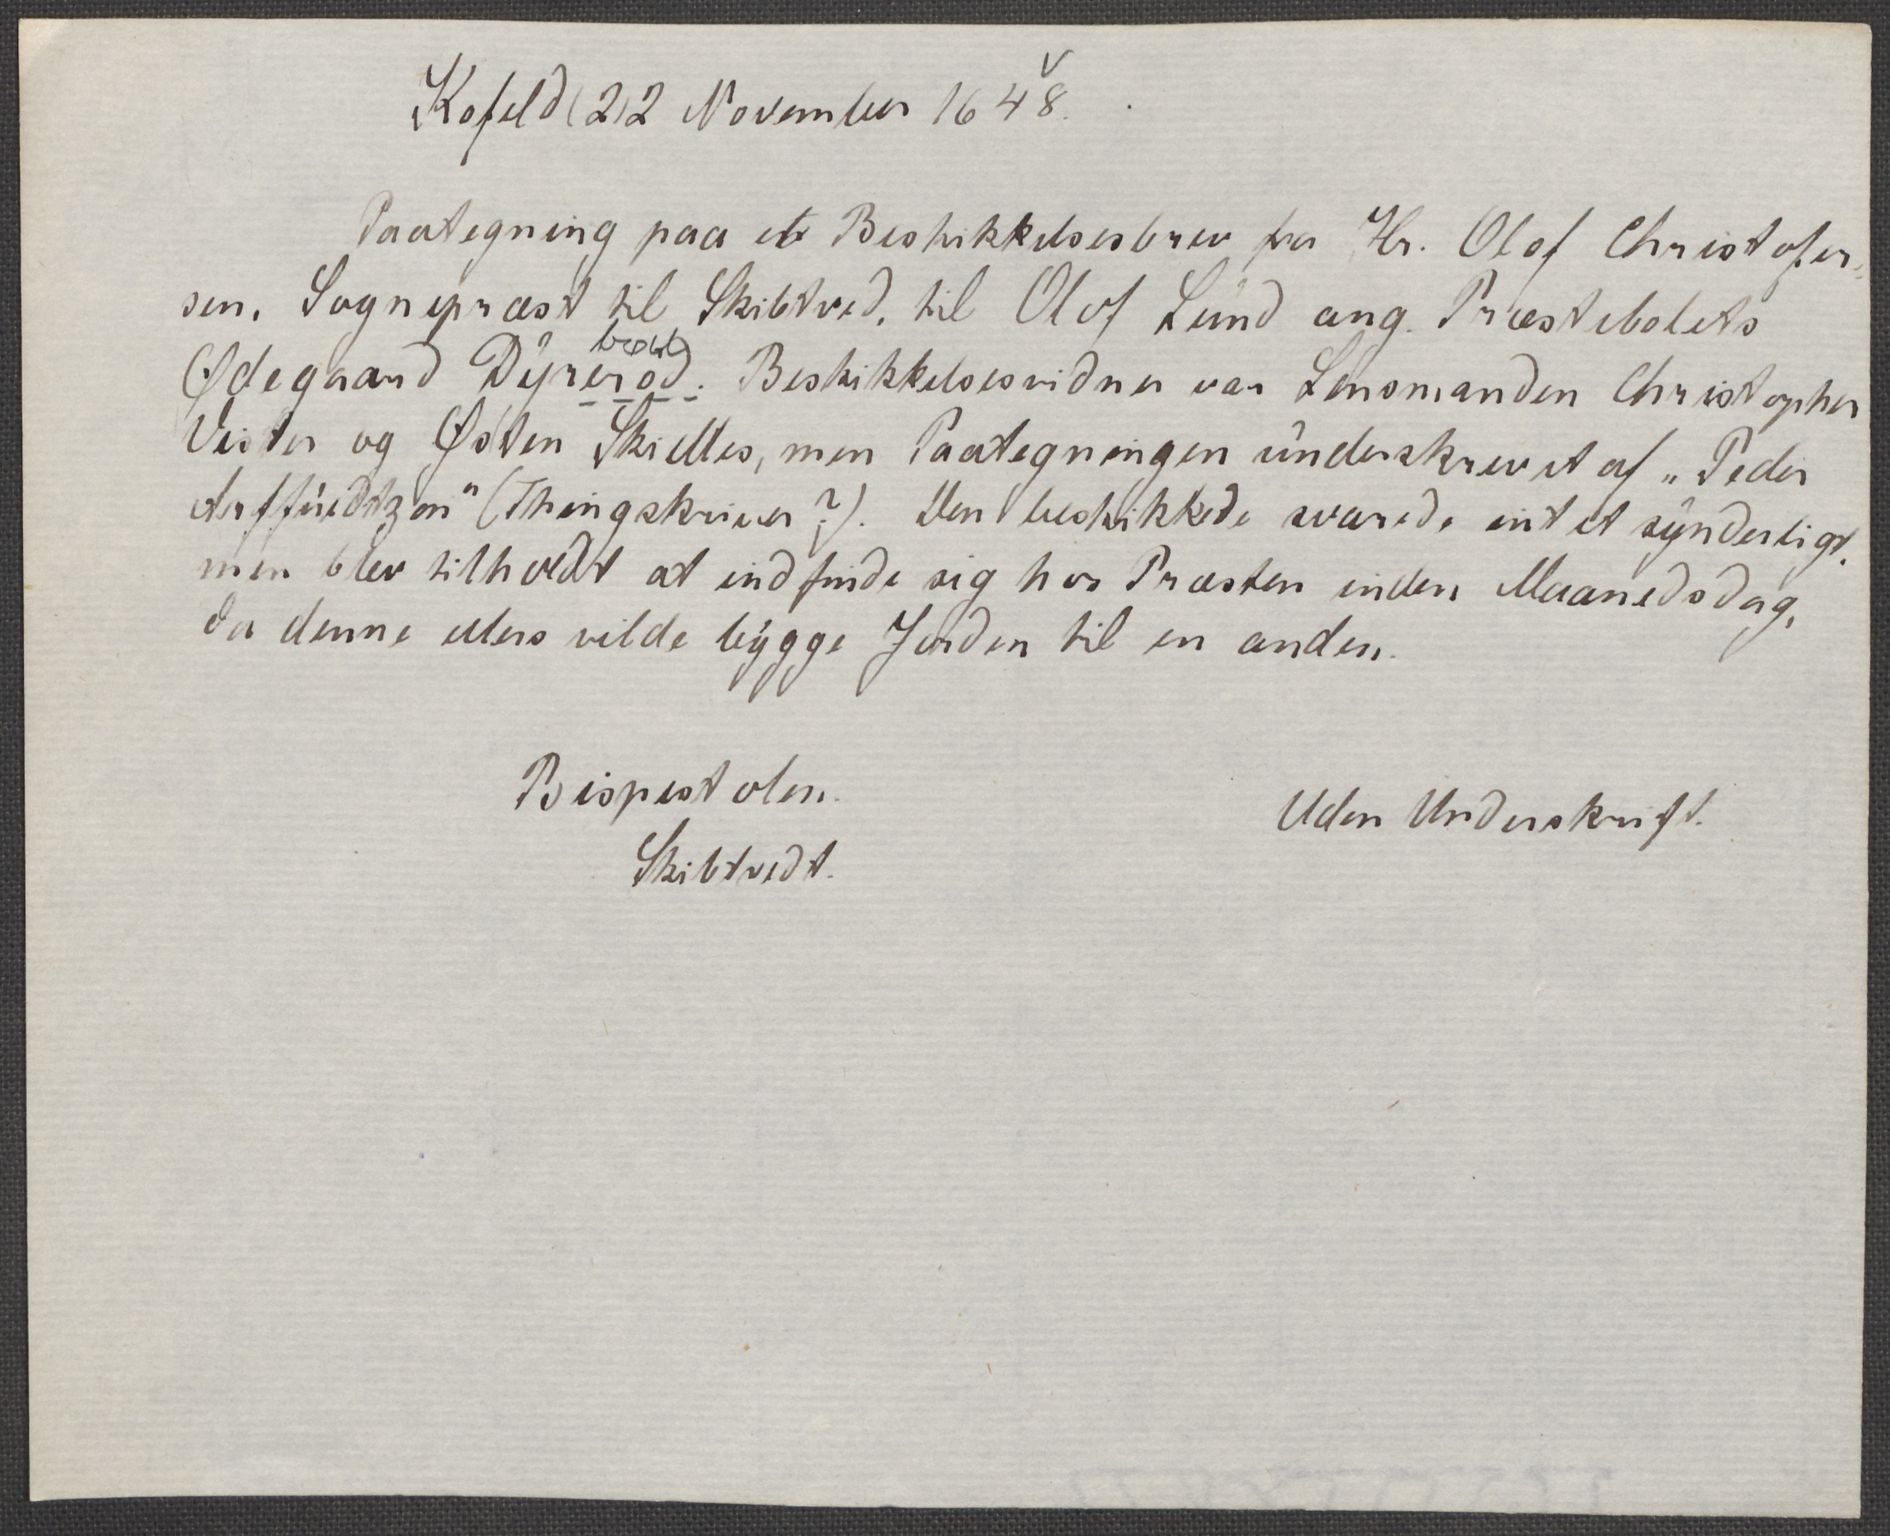 Kofeld (2)2 November 1648.
Paategning paa et Beskikkelsesbrev fra Hr. Olof Christofer-
sen, Sognepræst til Skibtved, til Olof Lund ang. Præstebolets
Ødegaard Dyrerød. Beskikkelsesvidner var Lensmanden Christopher
Vister og Østen Skieltes, men Paategningen underskrevet af „Peder
Arffuedtzøn" (Thingskriver?). Den beskikkede svarede intet synderligt,
men blev tilholdt at indfinde sig hos Præsten inden Maanedsdag,
da denne ellers vilde bygge Jorden til en anden.
Bispestolen.
Uden Underskrift.
Skibtvedt.